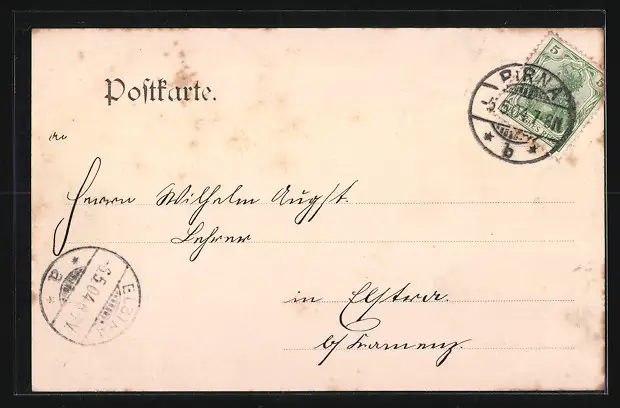 Postkarte.
An
Herrn Wilhelm Augst.
Lehrer
in Elstra.
b/ Kamenz.
5
5
PIRNA
5.5.04.7-8N
* b *
ELSTRA
-6.5.04.6-7V
* a *